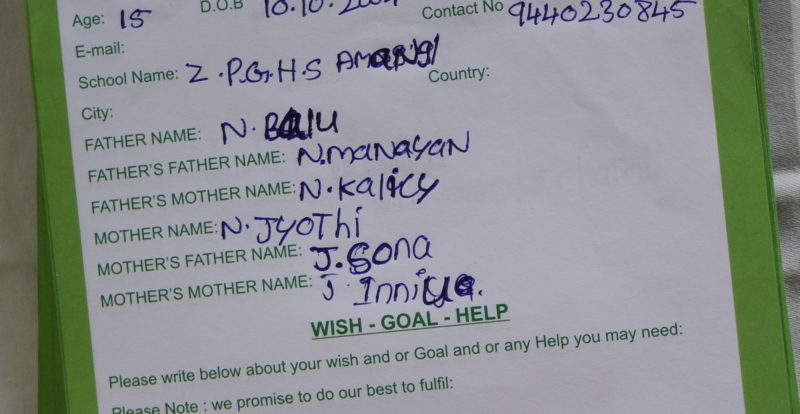 Age: 15 D.O.B 10.10.2004 Contact No 9440230845
E-mail:
School Name: Z.P.G.H.S Country:
City:
FATHER NAME: N. BALU
FATHER'S FATHER NAME: N.MANAYAN
FATHER'S MOTHER NAME: N.Kalicy
MOTHER NAME: N.JYOTHi
MOTHER'S FATHER NAME: J.Sona
MOTHER'S MOTHER NAME: J.
WISH - GOAL - HELP
Please write below about your wish and or Goal and or any Help you may need:
Please Note : we promise to do our best to fulfil: